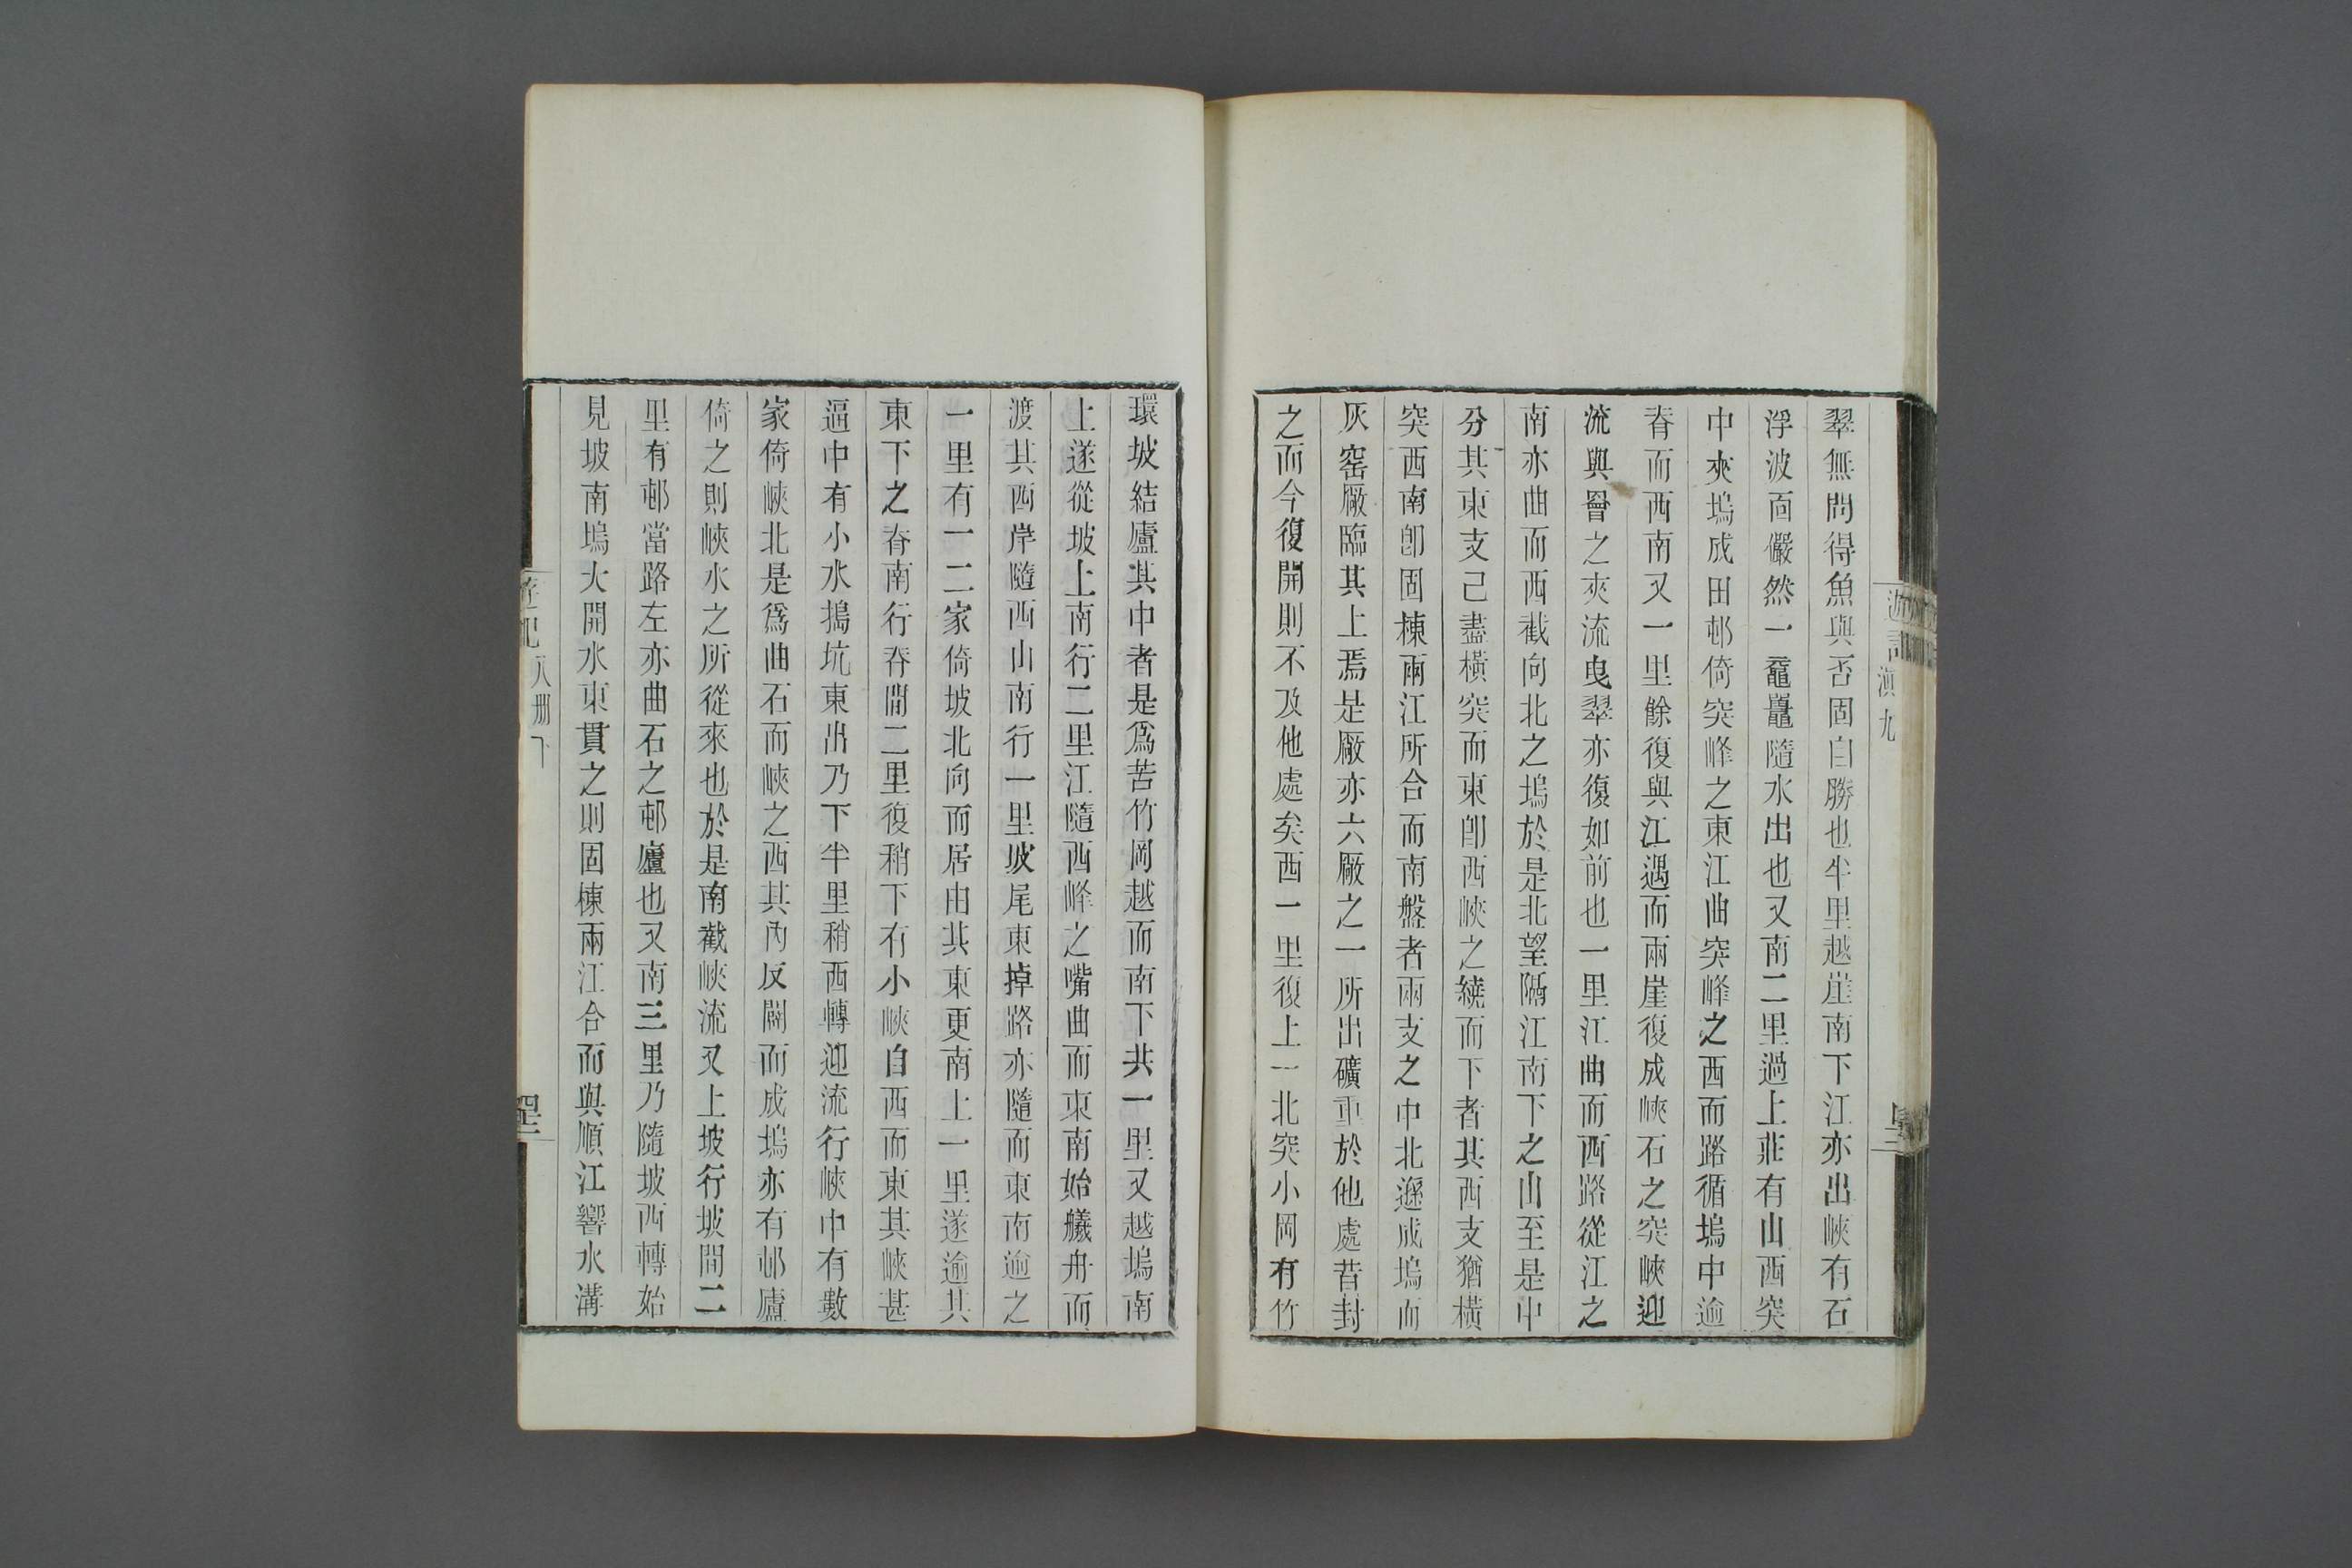 翠無問得魚與否固自勝也半里越崖南下江亦出峽有石
浮波面儼然一黿鼉隨水出也又南二里過上莊有山西突
中夾塢成田邨倚突峰之東江曲突峰之西而路循塢中逾
脊而西南又一里餘復與江遇而兩崖復成峽石之突峽迎
流與罾之夾流曳翠亦復如前也一里江曲而西路從江之
南亦曲而西截向北之塢於是北望隔江南下之山至是中
分其東支已盡橫突而東卽西峽之繞而下者其西支猶橫
突西南卽固棟兩江所合而南盤者兩支之中北邐成塢而
灰窑廠臨其上焉是廠亦六廠之一所出礦重於他處昔封
之而今復開則不及他處矣西一里復上一北突小岡有竹
游記 滇九
環坡結廬其中者是爲苦竹岡越而南下共一里又越塢南
上遂從坡上南行二里江隨西峰之嘴曲而東南始艤舟而
渡其西岸隨西山南行一里坡尾東掉路亦隨而東南逾之
一里有一二家倚坡北向而居由其東更南上一里遂逾其
東下之脊南行脊間二里復稍下有小峽自西而東其峽甚
逼中有小水搗坑東出乃下半里稍西轉迎流行峽中有數
家倚峽北是爲曲石而峽之西其內反闢而成塢亦有邨廬
倚之則峽水之所從來也於是南截峽流又上坡行坡間二
里有邨當路左亦曲石之邨廬也又南三里乃隨坡西轉始
見坡南塢大開水東貫之則固棟兩江合而與順江響水溝
八册下